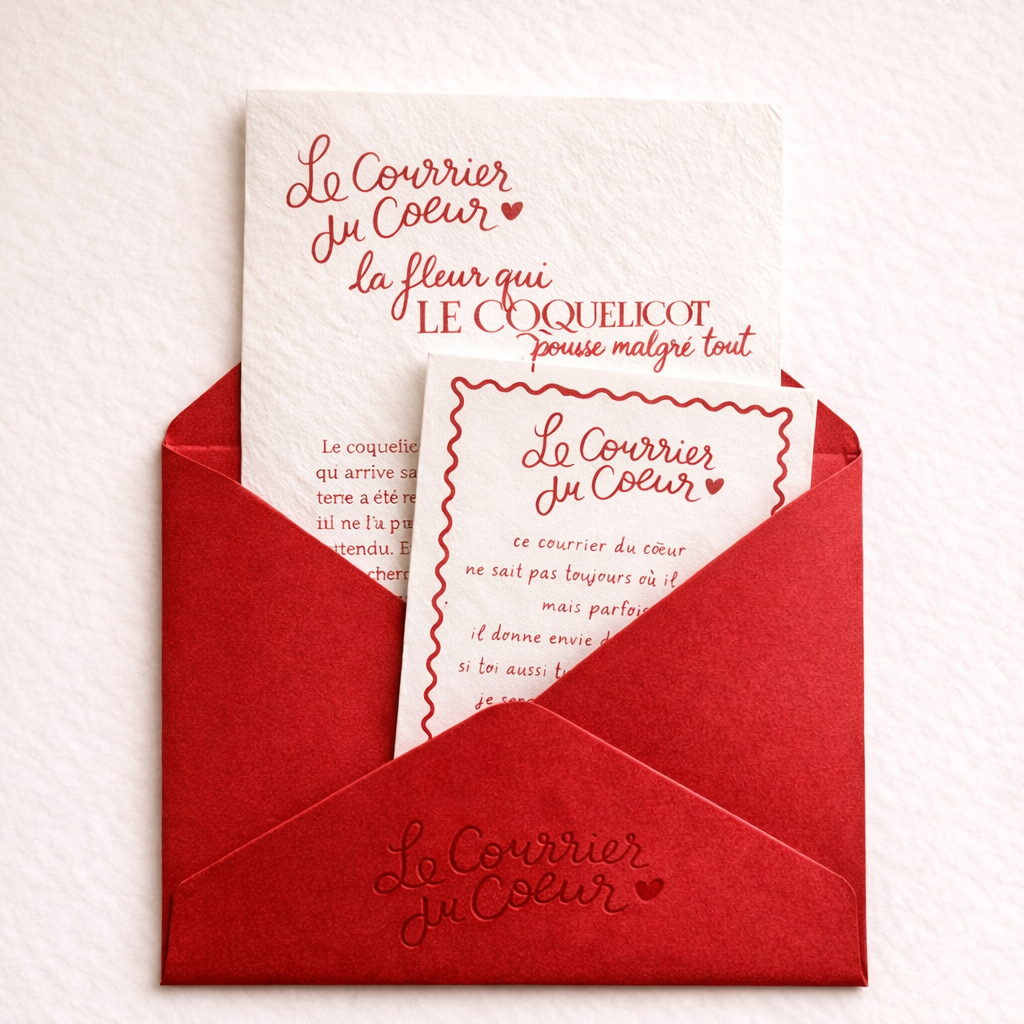 Le Courrier
du Coeur
la fleur qui
LE COQUELICOT
pousse malgré tout
Le
qui arrive
terre a été
il ne l'a
Le Courrier
du Coeur
ce courrier du cœur
ne sait pas toujours où il
mais parfois
il donne envie
si toi aussi
je
Le Courrier
du Coeur